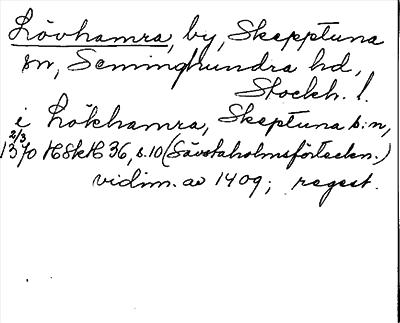 Lövhamra, by, Skepptuna
sn, Seminghundra hd,
Stockh. l.
i Lökhamra, Skeptuna s:n,
2/3
1370 HSkH 36, s.10 (Sävstaholmsförteckn.)
vidim. av 1409; regest.